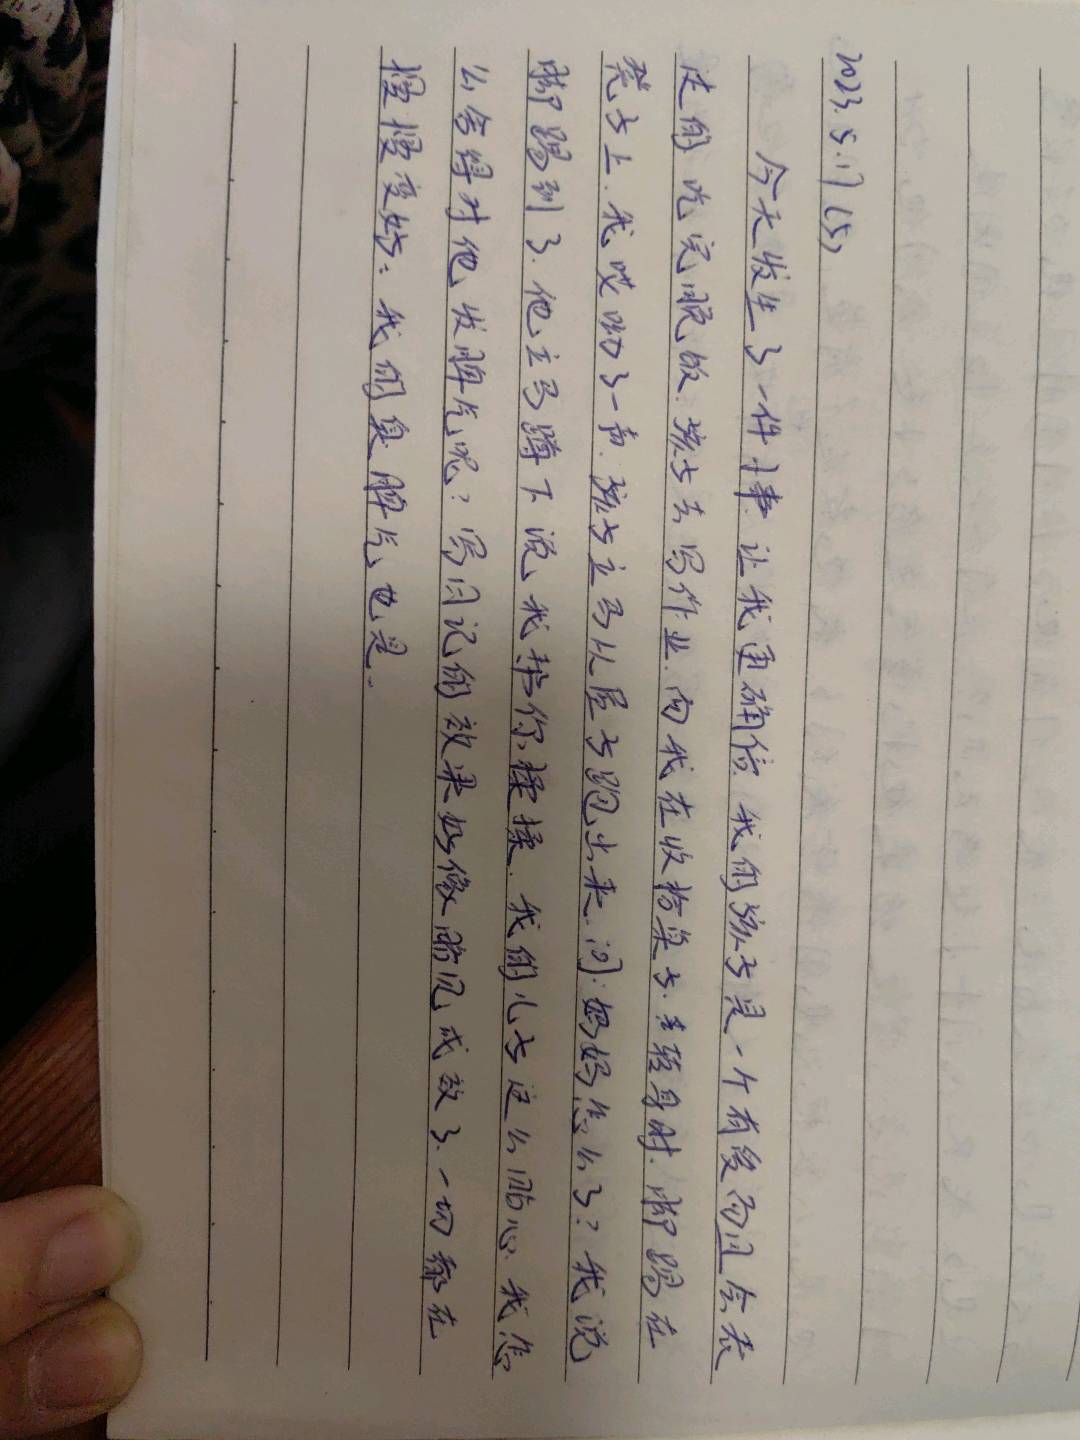 2023.5.17 (5)
今天发生了一件小事.让我更确信.我们孩子是一个有爱而且会表
达的.吃完晚饭.孩子去写作业.而我在收拾桌子.转身时.脚踢在
凳子上.我哎呦了一声.孩子立马从屋子跑出来.问:妈妈怎么了?我说
脚踢到了.他立马蹲下说.我帮你揉揉.我们儿子这么贴心.我怎
么舍得对他发脾气呢?写日记的效果好像略见成效了.一切都在
慢慢变好:我们的臭脾气也是.